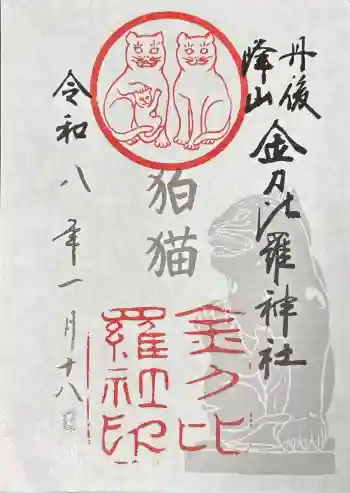 丹後
峰山
金刀比羅神社
狛猫
金刀比
羅社印
令和八年一月十八日